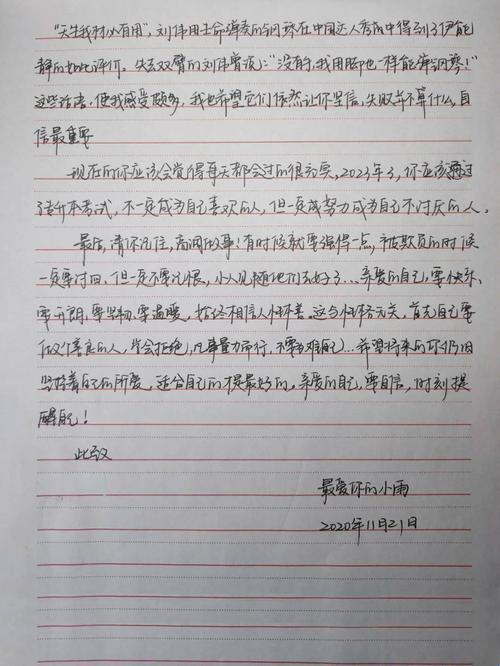 “天生我材必有用”，刘伟用生命弹奏的钢琴在中国达人秀成中得到了伊能
静的如此评价。失去双臂的刘伟曾说：“没有手，我用脚也一样能弹钢琴！”
这些话语，使我感受颇多，我也希望它们依然让你坚信，失败并不算什么，自
信最重要
现在的你应该会觉得每天都会过的很充实，2023年了，你应该通过
专升本考试，不一定成为自己喜欢的人，但一定成努力成为自己不讨厌的人。
最后，请你记住，高调做事！有时候就要强得一点，被欺负的时候
一定要讨回，但一定不要记恨，小人见随他们去好了…亲爱的自己，要快乐、
要开朗、要坚韧、要温暖，始终相信人性本善。这与性格无关，首先自己要
做个善良的人，学会拒绝，凡事量力而行，不要为难自己…希望将来的你仍旧
坚持着自己的所爱，适合自己的才是最好的。亲爱的自己，要自信，时刻提
醒自己！
此致
最爱你的小雨
2020年11月21日